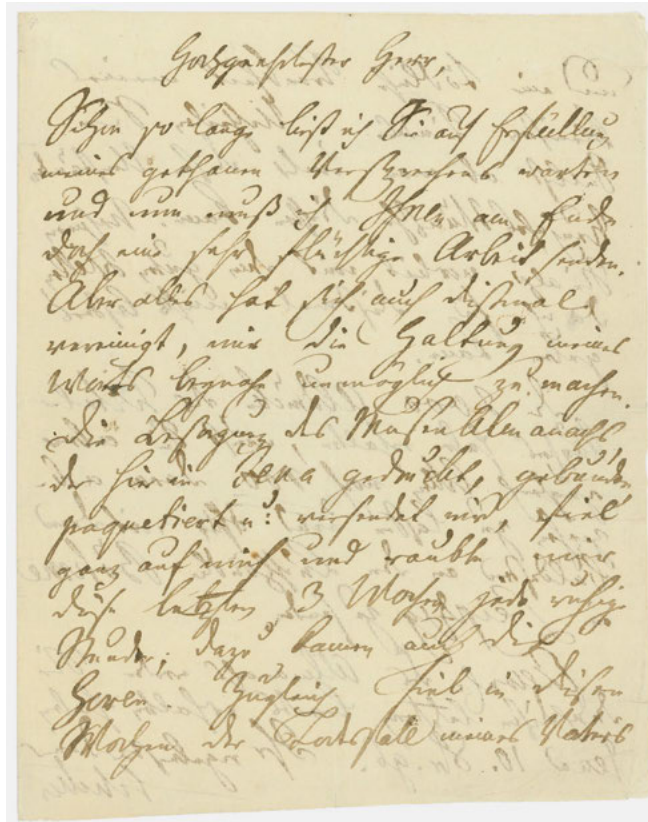 Hochgeehrtester Herr,
Schon so lange ließ ich Sie auf Erfüllung
meines gethanen Versprechens warten
und nun muß ich Ihnen am Ende
doch eine sehr flüchtige Arbeit senden.
Aber alles hat sich auch dießmal
vereinigt, mir die Haltung meines
Worts beynahe unmöglich zu machen.
Die Besorgung des MusenAlmanachs
der hier in Jena gedruckt, gebunden
paquetiert u: versendet wird, fiel
ganz auf mich und raubte mir
diese letzten 3 Wochen jede ruhige
Stunde; dazu kamen auch die
Horen. Zugleich fiel in diesen
Wochen der Todesfall meines Vaters